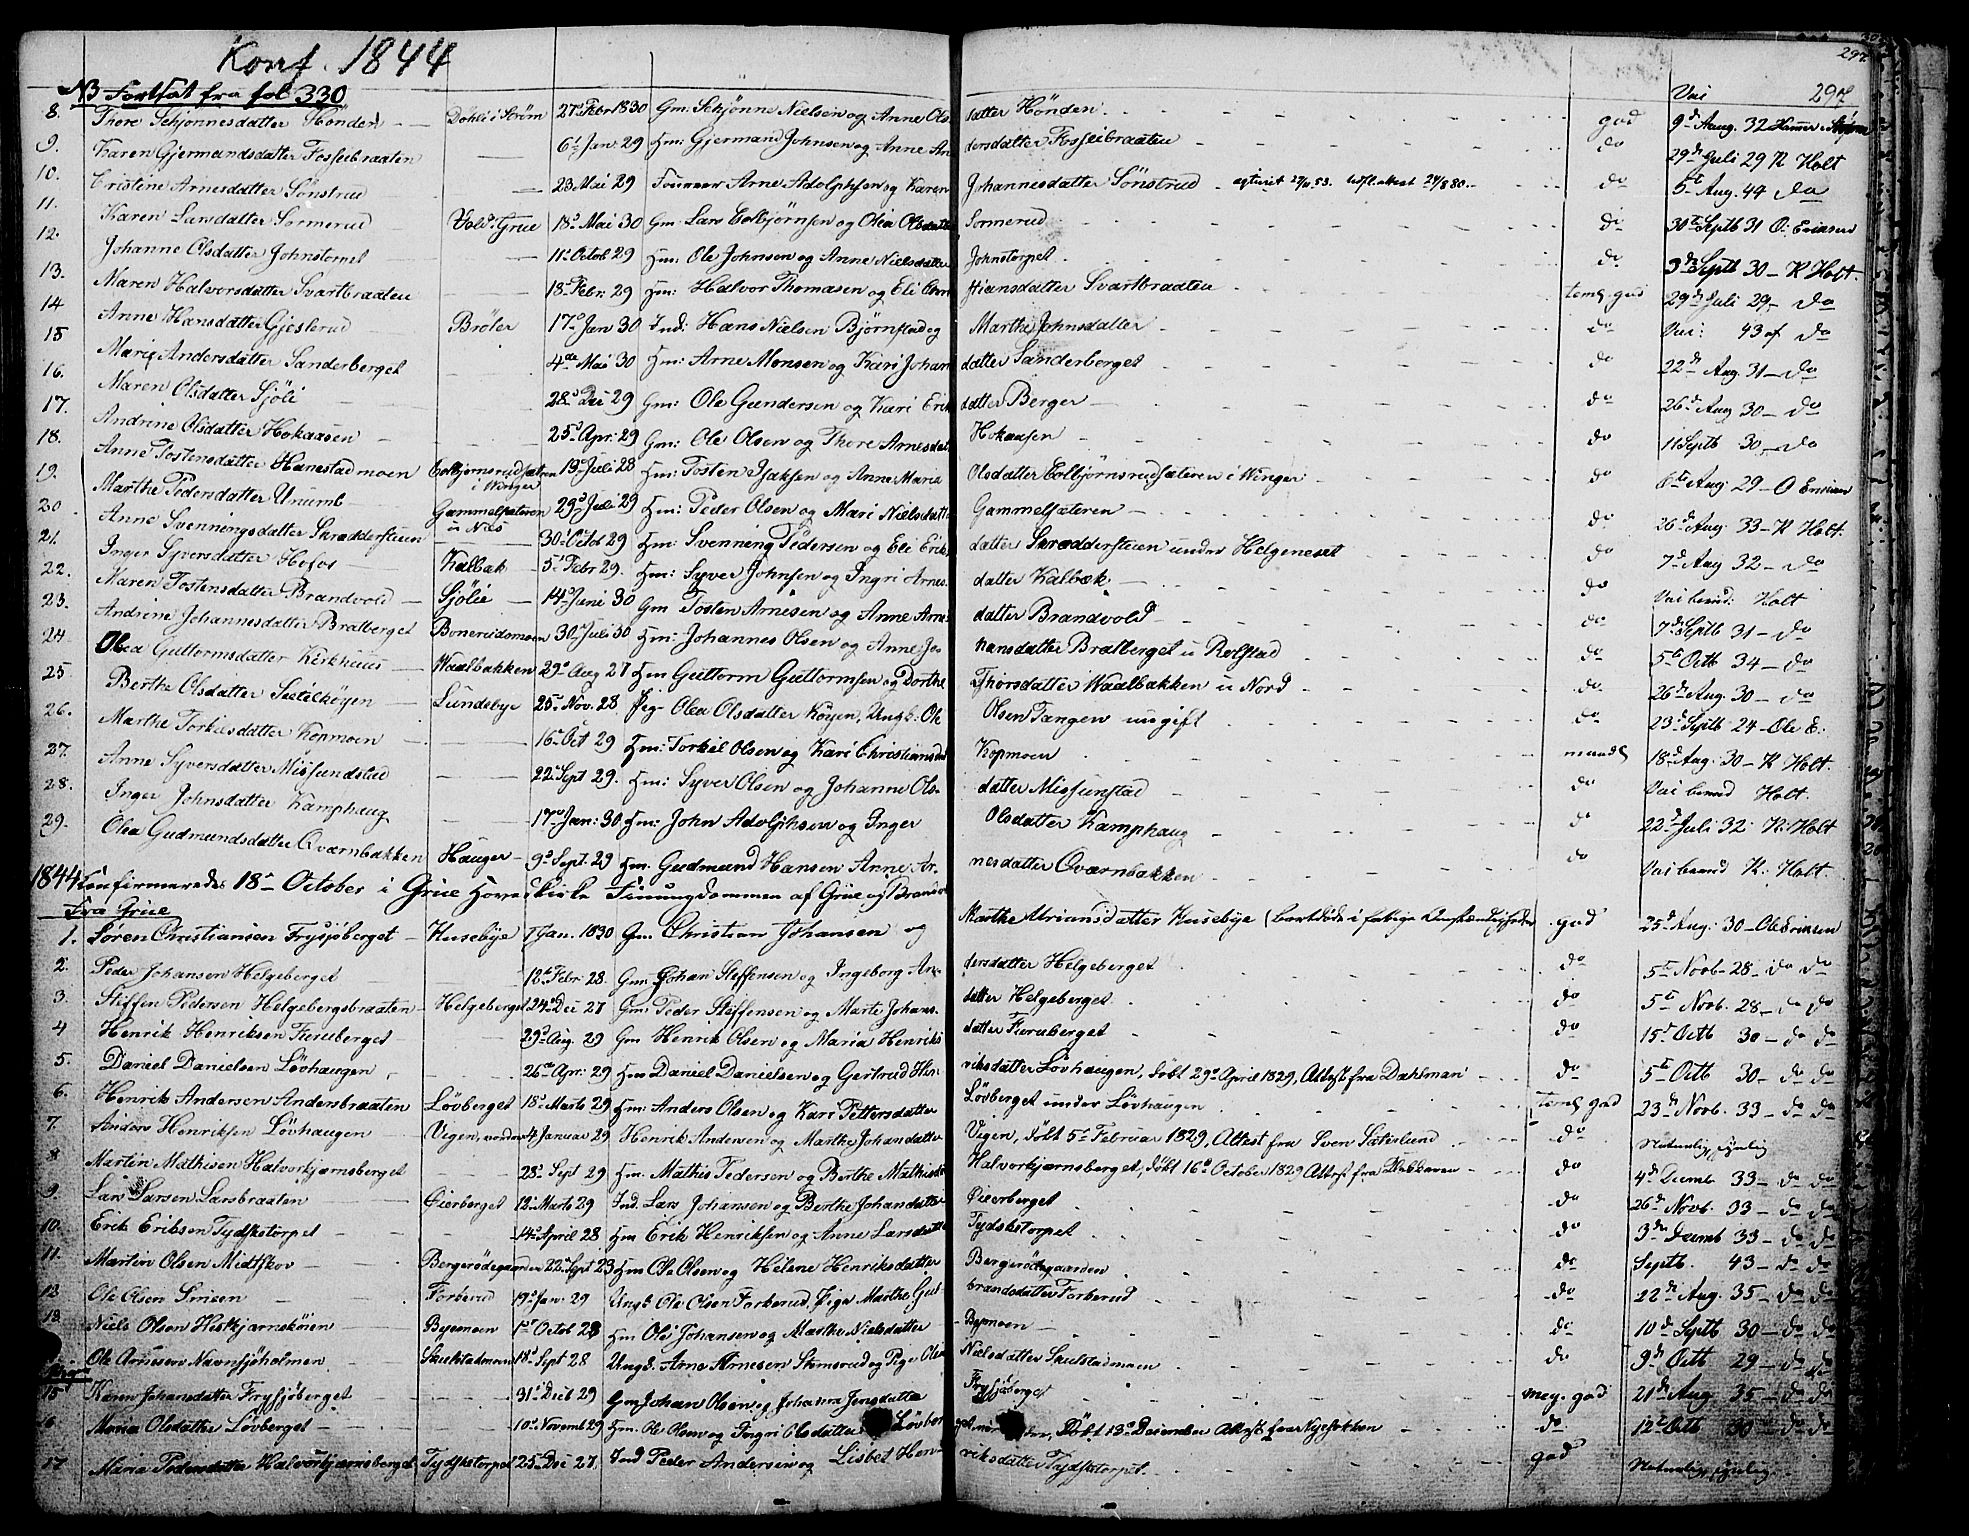 Konf. 1844
297
NB Fortsat fra fol 330
Vac 297
8. Thore Schjønnesdatter Hönden Döhli i Strøm 27de Febr 1830 Gm: Schjønne Nielsen og Anne Ols datter Hönden god 9de Aug. 32
9. Karen Gjermandsdatter Fosseibraaten 6te Jan. 29 Hm: Gjermand Johnsen og Anne An dersdatter Fosseibraaten do 29de Juli 29 K Holt
10. Cristine Arnesdatter Sönstrud 23 Mai 29 Arne Adolphsen og Karen Johannesdatter Sönstrud do 5te Aug. 44 do
11. Karen Larsdatter Sormerud Vold i Grue 18de Mai 30 Gm: Lars Colbjørnsen og Olea Olsdatter Sormerud do 30te Septb 31 O: Eriksen
12. Johanne Olsdatter Johnstorpet 11te Octob 29 Hm: Ole Johnsen og Anne Nielsdatter Johnstorpet do 9de Septb 30 K Holt.
13. Maren Halvorsdatter Svartbraaten 18de Febr: 29 Hm: Halvor Thomasen og Eli Chri stiansdatter Svartbraaten teml god 29de Juli 29 do
14 Anne Hansdatter Gjeslerud Bröler 17de Jan 30 Ind: Hans Nielsen Björnstad og Marthe Johnsdatter do Vac: 43 af do
15 Marie Andersdatter Sanderberget 4de Mai 30 Hm: Arne Monsen og Kari Johan datter Sanderberget do 22de Aug. 31 do
16. Maren Olsdatter Sjöli 28de Dec 29 Gm: Ole Gundersen og Kari Erik datter Berger do 26de Aug 30 do
17. Andrine Olsdatter Hokaasen 25de Apr: 29 Gm: Ole Olsen og Thore Arnesdat Hokaasen do 11 Septb 30 do
18. Anne Tostensdatter Hanestadmoen Colbjørnsrudsæteren i Winger 19de Juli 28 Hm: Tosten Isaksen og Anne Marie Olsdatter Colbjörnsrudsæteren i Winger do 6te Aug 29 O Eriksen
19. Marthe Pedersdatter Unumb Gammelsæteren u Næs 29de Juli 29 Hm: Peder Olsen og Mari Nielsdatter Gammelsæteren do 26de Aug 33 K Holt.
20. Anne Svenningsdatter Skræddersteien 30te Octob 29 Hm: Svenning Pedersen og Eli Eriks datter Skræddersteien under Helgeneset do 7de Aug 32 do
21. Inger Syversdatter Hofos Kalbak 5te Febr 29. Hm: Syver Johnsen og Ingri Arnes datter Kalbæk do Vac bemd: Holt
22. Maren Tostensdatter Brandvold Sjölie 14de Juni 30 Gm Tosten Arnesen og Anne Arne datter Brandvold do 7de Septb 31 do
23. Andrine Johannesdatter Bratberget Bonerudsmoen 30te Juli 30 Hm: Johannes Olsen og Anne Jo hansdatter Bratberget u Rolstad do 5te Octb 34 do
24. Olea Guttormsdatter Kirkhuus Waalbakken 29de Aug 27 Hm Guttorm Guttormsen og Dorthe Thorsdatter Waalbakken u Nord do 26de Aug. 30 do
25. Berthe Olsdatter Sætelköyen Lundebye 25de Nov. 28 Pig Olea Olsdatter Köyen, Ungk: Ole Olsen Tangen ungift do 23de Septb 24 Ole E:
26. Marthe Torkilsdatter Kopmoen 16de Oct 29 Hm: Torkel Olsen og Kari Christiansdat Kopmoen maadl 18de Aug. 30 K Holt.
27. Anne Syversdatter Missundstad 22de Sept 29. Hm: Syver Olsen og Johanne Ols datter Missunstad do Vac bemd Holt.
28. Inger Johnsdatter Kamphaug 17de Jan: 30 Hm: John Adolphsen og Inger Olsdatter Kamphaug do 22de Juli 32 K: Holt
29. Olea Gudmundsdatter Qværnbakken Hauger 9de Sept. 29 Hm. Gudmund Hansen Anne Ar nesdatter Qværnbakken do Vac bemd K: Holt.
1844 Confirmerede: 18de October i Grue Hovedkirke Finungdommen af Grue og Brandv
Fra Grue
1. Sören Christiansen Frysjöberget Husebye 7 Jan. 1830 Gm. Christian Johansen og Marthe Adriansdatter Husebye god 25de Aug: 30 Ole Eriksen
2. Peder Johansen Helgeberget 12te Febr. 28 Gm. Johan Steffensen og Ingeborg An dersdatter Helgeberget do 5te Novb 28 do do
3. Steffen Pedersen Helgebergsbraaten Helgeberget 24de Dec 27 Gm: Peder Steffensen og Marte Johans datter Helgeberget do 5te Novb. 28 do do
4 Henrik Henriksen Furuberget 29de Aug. 29 Gm Henrik Olsen og Maria Henriks datter Furuberget do 15de Octb 30 do do
5. Daniel Danielsen Lövhaugen 26de Apr: 29 Hm Daniel Danielsen og Gertrud Hen riksdatter Lövhaugen, Födt 29de April 1829, Attest fra Dahlman do 5te Octb 30 do do
6. Henrik Andersen Andersbraaten Lövberget 18de Marts 29 Hm: Anders Olsen og Kari Pettersdatter Lövberget under Lövhaugen teml god 23de Novb. 33 do do
7. Anders Henriksen Lövhaugen Vigen 4 Januar 29 Henrik Andersen og Marthe Johandatter Vigen, födt 5te Februar 1829, Attest fra Sven Säterlund do Naturlig
8 Martin Mathisen Halvorkjærnsberget 28de Sept 29 Hm: Mathis Pedersen og Berthe Mathisdat Halvorkjærnsberget, födt 16de October 1829 Attest fra do 4de Decmb 33 do do
9. Lars Larsen Larsbraaten Øierberget 12te Marts 29 Ind. Lars Johansen og Berthe Johandatter Øierberget do 26de Novb. 33 do do
10. Erik Eriksen Tydskstorpet 14de April 28 Hm Erik Henriksen og Anne Larsdatter Tydskstorpet do 3de Decmb 33 do do
11. Martin Olsen Midtskov Bergerödegaarden 22de Sept 23 Hm Ole Olsen og Helene Henriksdatter Bergerödegaarden do Septb. 43 do do
12 Ole Olsen Smeen Forberud 19de Jan. 29 Ungk Ole Olsen Forberud, Pige Marthe Gul brandsdatter Forberud do 22de Aug. 35 do do
13. Niels Olsen Bysmoen 1ste Octob 28 Hm Ole Johansen og Marthe Nielsdatter Bysmoen do 10de Septb 30 do do
Ole Arnesen Navnsjöholmen Skulstadmoen 18de Sept 28 Ungk. Arne Arnesen og Pige Olea Nielsdatter Skulstadmoen do 9de Octb 29 do do
15 Karen Johansdatter Frysjöberget 31te Decb 29 Gm Johan Olsen og Johanne Jensdatter Frysjöberget meg. god 21de Aug 35 do do
16 Maria Olsdatter Lövberget 10de Novemb 29 Hm. Ole Olsen og Ingri Olsdatter Lövber get Födt 13de December Attest fra do 12te Octb 30 do do
17 Maria Pedersdatter Halvorkjærnsberget Tydskstorpet 25de Dec 27. Ind Peder Andersen og Lisbet Hen riksdatter Tydskstorpet god Naturlig